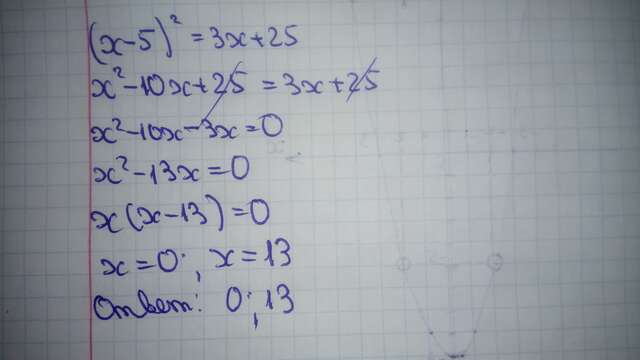 (x-5)² = 3x+25
x²-10x+25 = 3x+25
x²-10x-3x=0
x²-13x=0
x(x-13)=0
x=0; x=13
Ответ: 0; 13